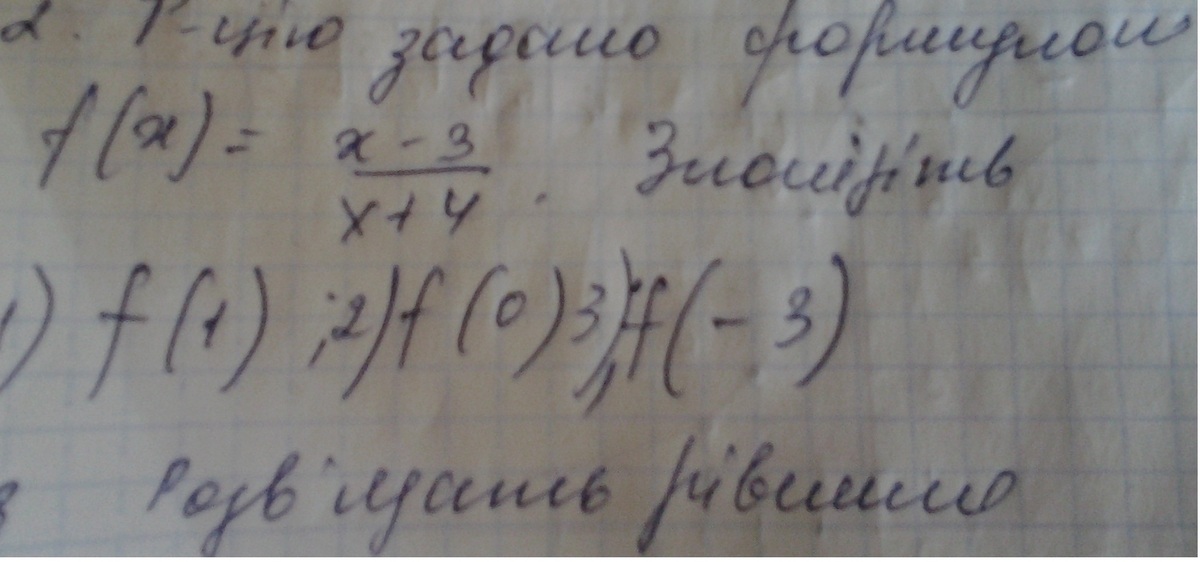 2. Ф-цію задано формулою
f(x) = x-3 / x+4 . Знайдіть
1) f(1) ; 2) f(0) 3) ; f(-3)
3 Розв'язать рівняння